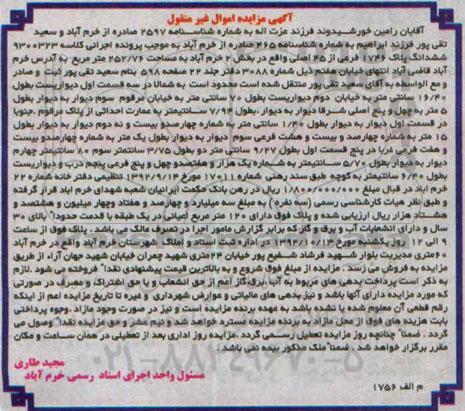 آگهی مزایده اموال غیر منقول
آقایان رامین خورشیدوند فرزند عزت اله به شماره شناسنامه ۲۵۹۷ صادره از خرم آباد و سعید
تقی پور فرزند ابراهیم به شماره شناسنامه ۲۶۵ صادره از خرم آباد به موجب پرونده اجرائی کلاسه ۹۳۰۰۳۲۳
ششدانگ پلاک ۱۷۴۶ فرعی از ۴۵ اصلی واقع در بخش ۲ خرم آباد به مساحت ۲۵۲/۷۶ متر مربع به آدرس خرم
آباد قاضی آباد انتهای خیابان هفتم ذیل شماره ۳۰۸۸ دفتر جلد ۲۲ صفحه ۵۹۸ بنام سعید تقی پور ثبت و صادر
و مع الواسطه به آقای سعید تقی پور منتقل شده است محدود است به شمالا در سه قسمت اول دیواریست بطول
۱۶/۴۰ سانتی متر به خیابان دوم دیواریست بطول ۷۰ سانتی متر به خیابان مرقوم سوم دیوار به دیوار بطول
چهل و پنج اصلی شرقا دیوار به دیوار بطول ۷/۹۴ سانتیمتر به عمارت احداثی از پلاک مرقوم جنوبا
در قسمت اول دیوار به دیوار بطول ۱/۴۰ سانتی متر به شماره چهارصدو بیست و نه دوم دیوار به دیوار بطول
۱۵ متر به شماره چهارصد و بیست و هشت فرعی سوم دیوار به دیوار بطول یک متر به شماره چهارصدو بیست
و هفت فرعی غربا در پنج قسمت اول بطول ۹/۲۷ سانتی متر دو بطول ۳/۷۵ سانتیمتر سوم ۸۰ سانتیمتر چهارم
دیوار به دیوار بطول ۵/۷۰ سانتیمتر به شماره یک هزار و هفتصدو چهل و پنج فرعی پنجم درب و دیواریست
بطول ۶/۴۰ سانتیمتر به کوچه طبق سند رهنی شماره ۱۷۰۱۱ مورخ ۱۳۹۲/۹/۱۴ تنظیمی دفتر خانه شماره ۲۲
خرم آباد در قبال مبلغ ۱/۸۰۰/۰۰۰/۰۰۰ ریال در رهن بانک حکمت ایرانیان شعبه شهدای خرم آباد قرار گرفته
و طبق نظر هیات کارشناسی رسمی (سه نفره) به مبلغ سه میلیارد و چهارصد و هفتاد وچهار میلیون و هشتصد و
هشتاد هزار ریال ارزیابی شده و پلاک فوق دارای ۱۲۰ متر مربع اعیانی در یک طبقه با قدمت حدودا" بالای ۳۰
سال و دارای انشعابات آب و برق و گاز که برابر گزارش مامور اجرا در تصرف مالک می باشد. پلاک فوق از ساعت
۹ الی ۱۲ روز یکشنبه مورخ ۱۳۹۴/۱۰/۱۳ در اداره ثبت اسناد و املاک شهرستان خرم آباد واقع در خرم آباد
۶۰متری مدیریت بلوار شهید فرشاد شفیع پور خیابان ۲۴متری شهید چمران خیابان شهید جهان آراء از طریق
مزایده به فروش می رسد . مزایده از مبلغ فوق شروع و به بالاترین قیمت پیشنهادی نقدا" فروخته می شود .لازم
به ذکر است پرداخت بدهی های مربوط به آب ،برق،گاز اعم از حق انشعاب و یا حق اشتراک و مصرف در صورتی
که مورد مزایده دارای آنها باشد و نیز بدهی های مالیاتی و عوارض شهرداری و غیره تا تاریخ مزایده اعم از اینکه
رقم قطعی آن معلوم شده یا نشده باشد به عهده برنده مزایده است و نیز در صورت وجود مازاد .وجوه پرداختی
بابت هزینه های فوق از محل مازاد به برنده مزایده مسترد خواهد شد و نیم عشر و حق مزایده نقدا" وصول می
گردد . ضمنا" چنانچه روز مزایده تعطیل رسمی گردد ،مزایده روز اداری بعد از تعطیلی در همان ساعت و مکان
مقرر برگزار خواهد شد . ضمنا" ملک مذکور بیمه نمی باشد .
مجید طاری
مسئول واحد اجرای اسناد رسمی خرم آباد
م الف ۱۷۵۶